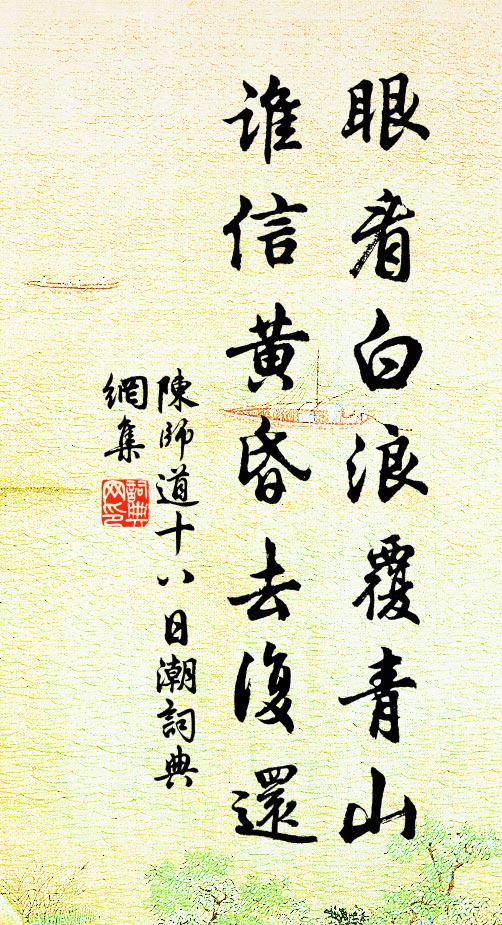 眼看白浪覆青山
誰信黄昏去復還
陳師道十八日潮詞典
網集
詞典
网印